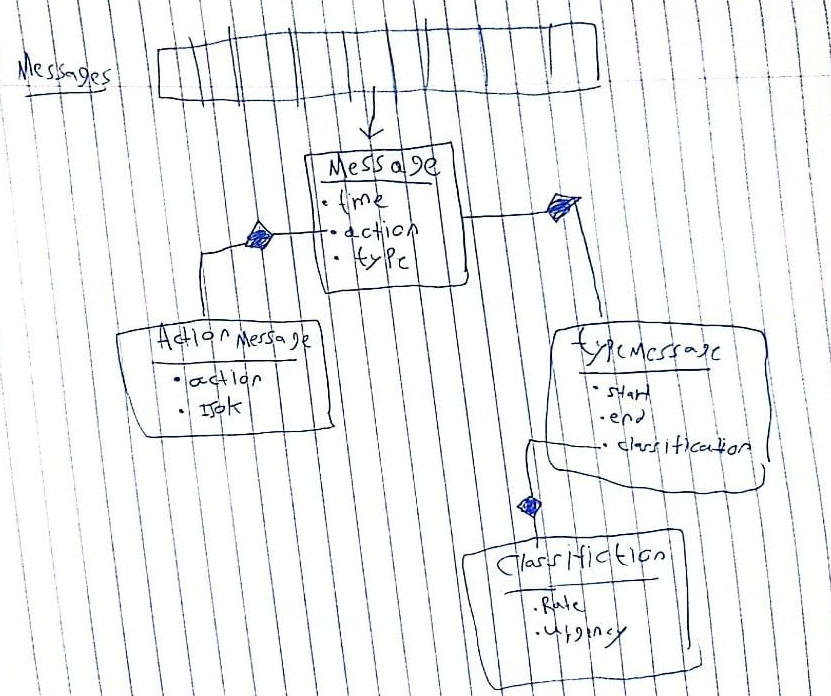 Messages
Message
• time
• action
• type
Action Message
• action
• ISok
typeMessage
• start
• end
• classification
Classifiction
• Rate
• urgency